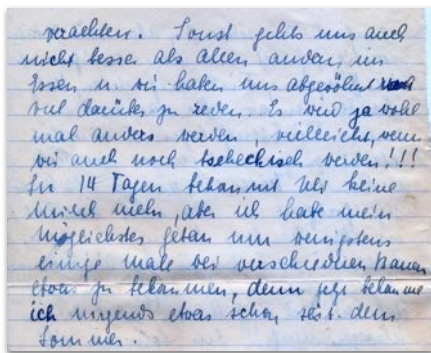 verachten. Sonst gehts uns auch
nicht besser als allen andern, im
Essen u. wir haben uns abgewöhnt
viel darüber zu reden. Es wird ja wohl
mal anders werden, vielleicht, wenn
wir auch noch tschechisch werden!!!
In 14 Tagen bekommt Uli keine
Milch mehr, aber ich habe mein
möglichstes getan um wenigstens
einige male bei verschiednen Bauern
etwas zu bekommen, denn jezt bekamme
ich nirgends etwas schon seit dem
Sommer.